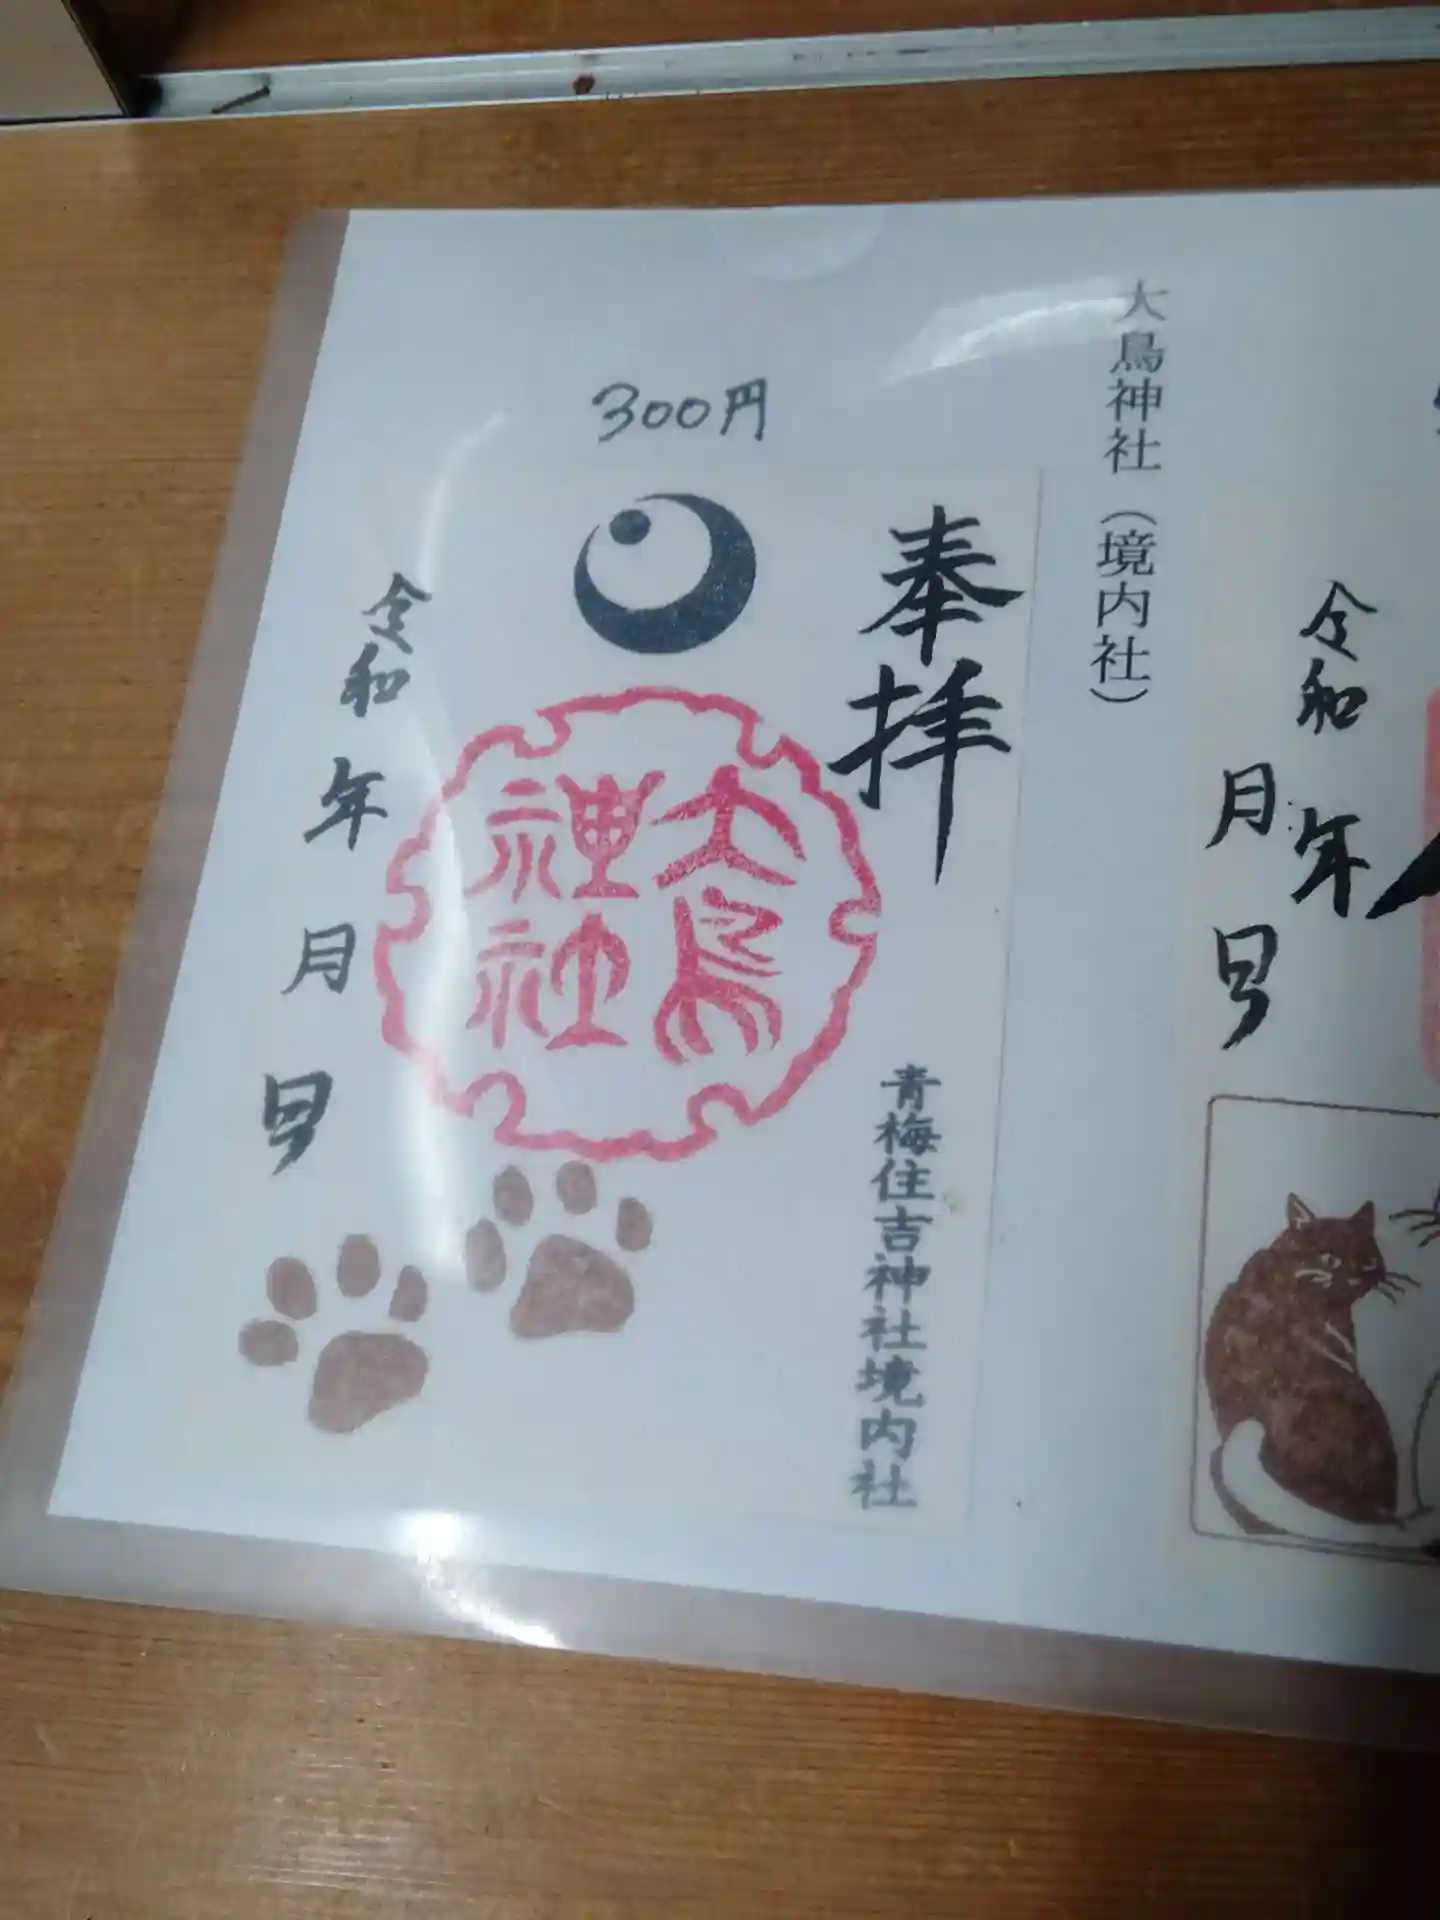 令和 年 月 日
大鳥神社（境内社）
300円
奉拝
大鳥神社
青梅住吉神社境内社
令和 年 月 日